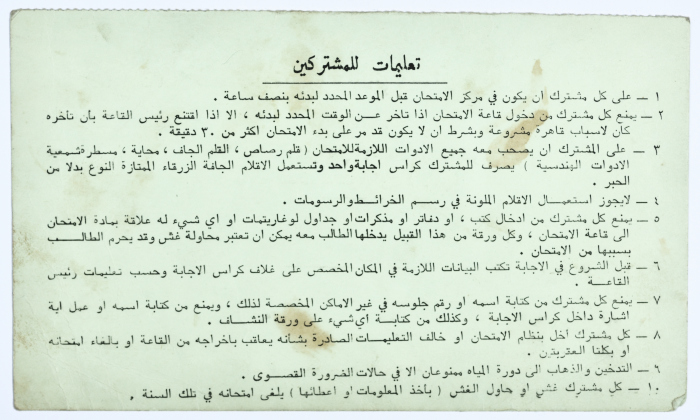 تعليمات للمشتركين
١ ــ على كل مشترك ان يكون في مركز الامتحان قبل الموعد المحدد لبدئه بنصف ساعة .
٢ ــ يمنع كل مشترك من دخول قاعة الامتحان اذا تاخر عن الوقت المحدد لبدئه ، الا اذا اقتنع رئيس القاعة بأن تأخره
كان لاسباب قاهرة مشروعة وبشرط ان لا يكون قد مر على بدء الامتحان اكثر من ٣٠ دقيقة .
٣ ــ على المشترك ان يصحب معه جميع الادوات اللازمة للامتحان ( قلم رصاص ، القلم الجاف ، محاية ، مسطرة شمعية
الادوات الهندسية ) يصرف للمشترك كراس اجابة واحد وتستعمل الاقلام الجافة الزرقاء الممتازة النوع بدلا من
الحبر .
٤ ــ لايجوز استعمال الاقلام الملونة في رسم الخرائط والرسومات .
٥ ــ يمنع كل مشترك من ادخال كتب ، او دفاتر او مذكرات او جداول لوغاريتمات او اي شيء له علاقة بمادة الامتحان
الى قاعة الامتحان ، وكل ورقة من هذا القبيل يدخلها الطالب معه يمكن ان تعتبر محاولة غش وقد يحرم الطالب
بسببها من الامتحان .
٦ ــ قبل الشروع في الاجابة تكتب البيانات اللازمة في المكان المخصص على غلاف كراس الاجابة وحسب تعليمات رئيس
القاعة .
٧ ــ يمنع كل مشترك من كتابة اسمه او رقم جلوسه في غير الاماكن المخصصة لذلك ، ويمنع من كتابة اسمه او عمل اية
اشارة داخل كراس الاجابة ، وكذلك من كتابة اي شيء على ورقة النشاف .
٨ ــ كل مشترك أخل بنظام الامتحان او خالف التعليمات الصادرة بشأنه يعاقب باخراجه من القاعة او بالغاء امتحانه
او بكلتا العقوبتين .
٩ ــ التدخين والذهاب الى دورة المياه ممنوعان الا في حالات الضرورة القصوى .
١٠ ــ كل مشترك غش او حاول الغش ( بأخذ المعلومات او اعطائها ) يلغى امتحانه في تلك السنة .